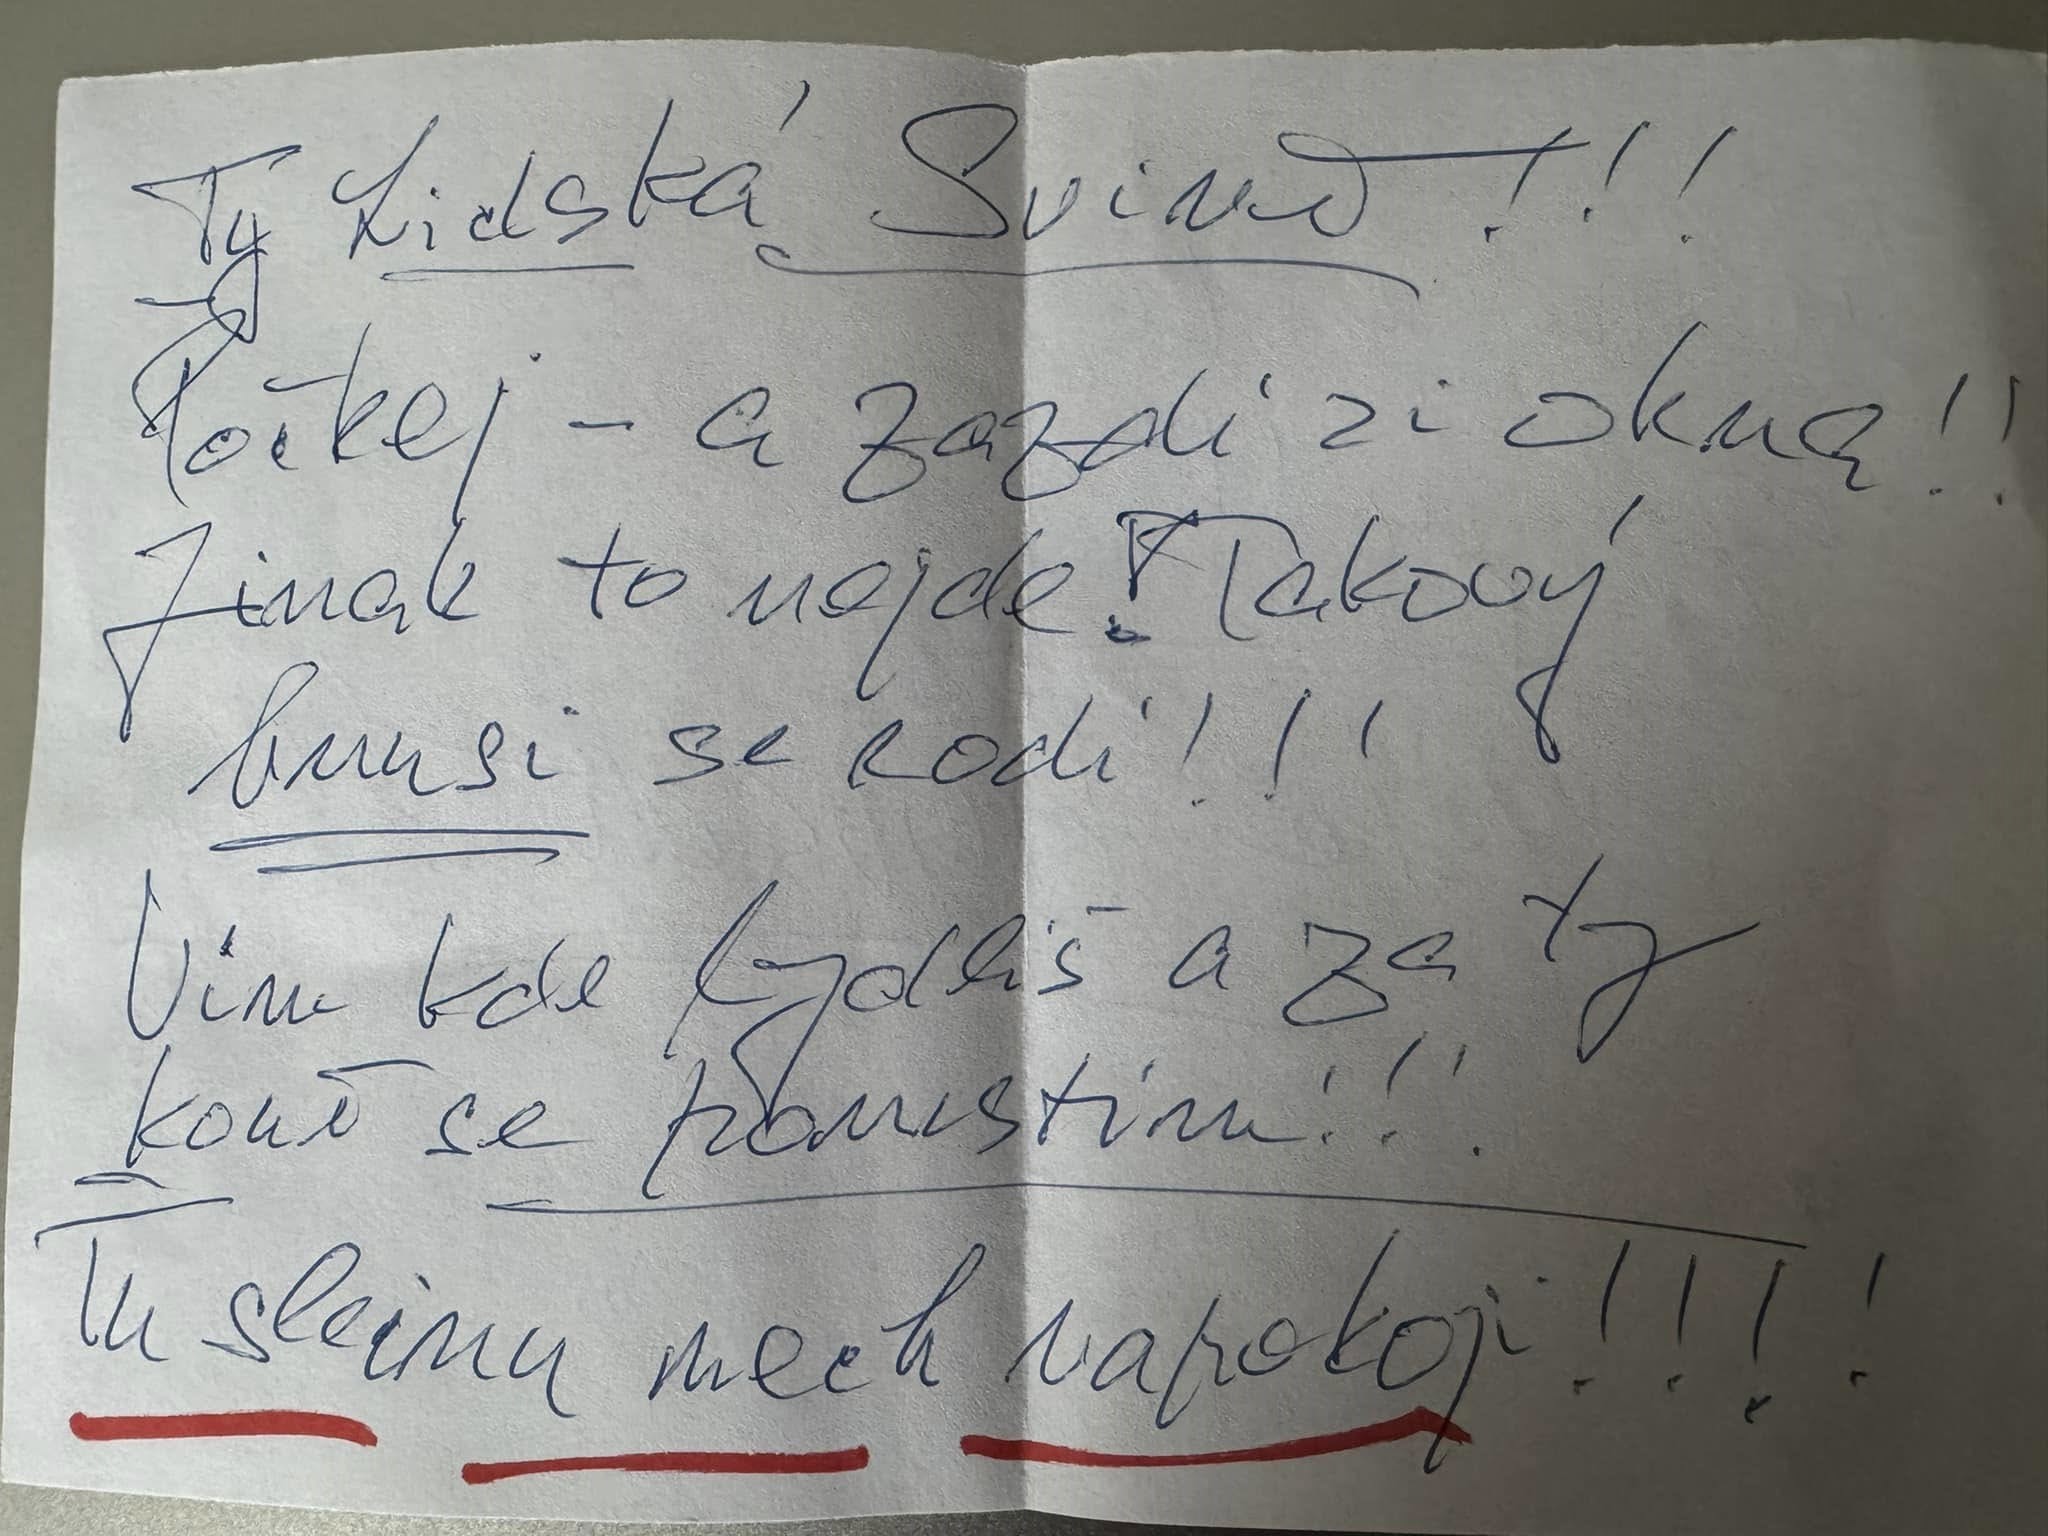 Ty Lidská Svině!!!
Počkej - a zazdi zi okna!!
Jinak to nejde! Takový
hnusi se rodi!!!
Vim kde bydliš a za ty
koně se pomstim!!!
Tu sleinu nech napokoji!!!!